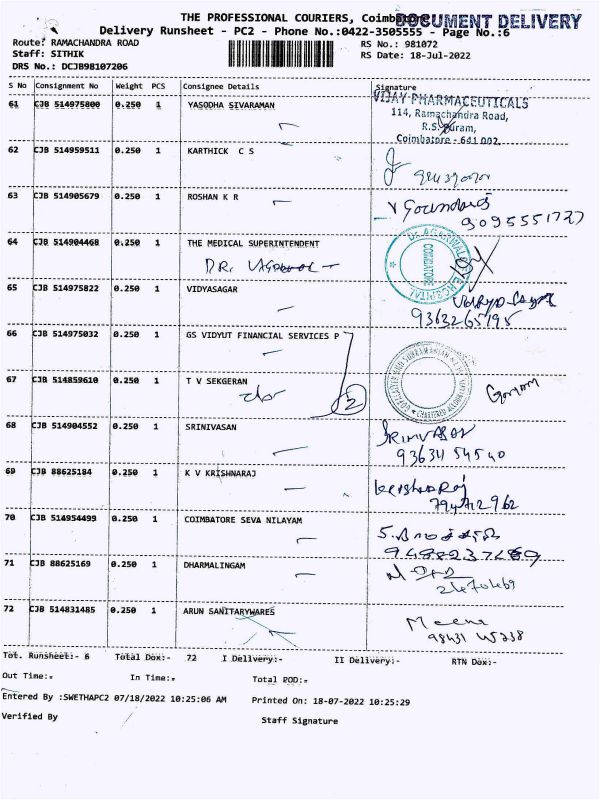 THE PROFESSIONAL COURIERS, Coimbatore
DOCUMENT DELIVERY
Delivery Runsheet - PC2 - Phone No.:0422-3505555 - Page No.:6
Route: RAMACHANDRA ROAD
RS No.: 981072
Staff: SITHIK
RS Date: 18-Jul-2022
DRS No.: DCJB98107206
S No Consignment No Weight PCS Consignee Details Signature
61 CJB 514975800 0.250 1 YASODHA SIVARAMAN
VIJAY PHARMACEUTICALS
114, Ramachandra Road,
R.S. Puram,
Coimbatore - 641 002.
62 CJB 514959511 0.250 1 KARTHICK C S
63 CJB 514905679 0.250 1 ROSHAN K R
9095551727
64 CJB 514904468 0.250 1 THE MEDICAL SUPERINTENDENT
DR.
DR. AGARWAL
EYE HOSPITAL
COIMBATORE
65 CJB 514975822 0.250 1 VIDYASAGAR
9363265795
66 CJB 514975032 0.250 1 GS VIDYUT FINANCIAL SERVICES P
67 CJB 514859610 0.250 1 T V SEKGERAN
2
CHARTERED ACCOUNTANTS
68 CJB 514904552 0.250 1 SRINIVASAN
SRINIVASAN
9363454540
69 CJB 88625184 0.250 1 K V KRISHNARAJ
70 CJB 514954499 0.250 1 COIMBATORE SEVA NILAYAM
71 CJB 88625169 0.250 1 DHARMALINGAM
72 CJB 514831485 0.250 1 ARUN SANITARYWARES
Meena
Tot. Runsheet:- 6 Total Dox:- 72 I Delivery:- II Delivery:- RTN Dox:-
Out Time:- In Time:- Total POD:-
Entered By :SWETHAPC2 07/18/2022 10:25:06 AM Printed On: 18-07-2022 10:25:29
Verified By Staff Signature